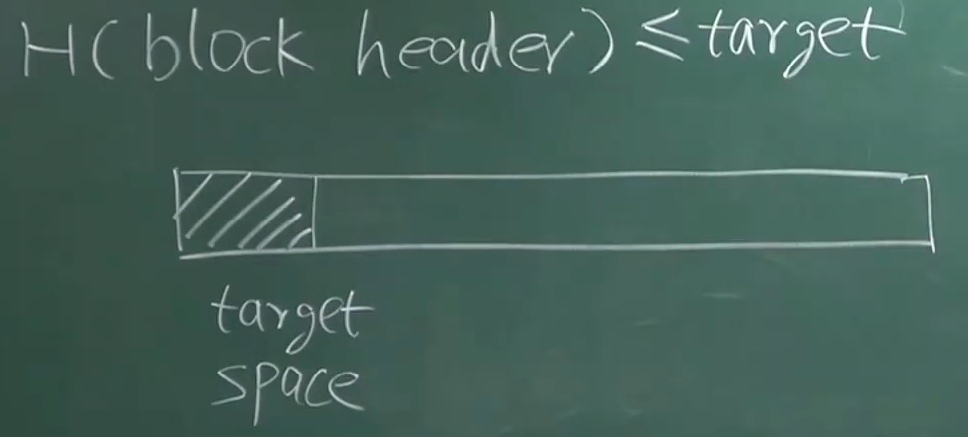 H(block header) ≤ target
target
space